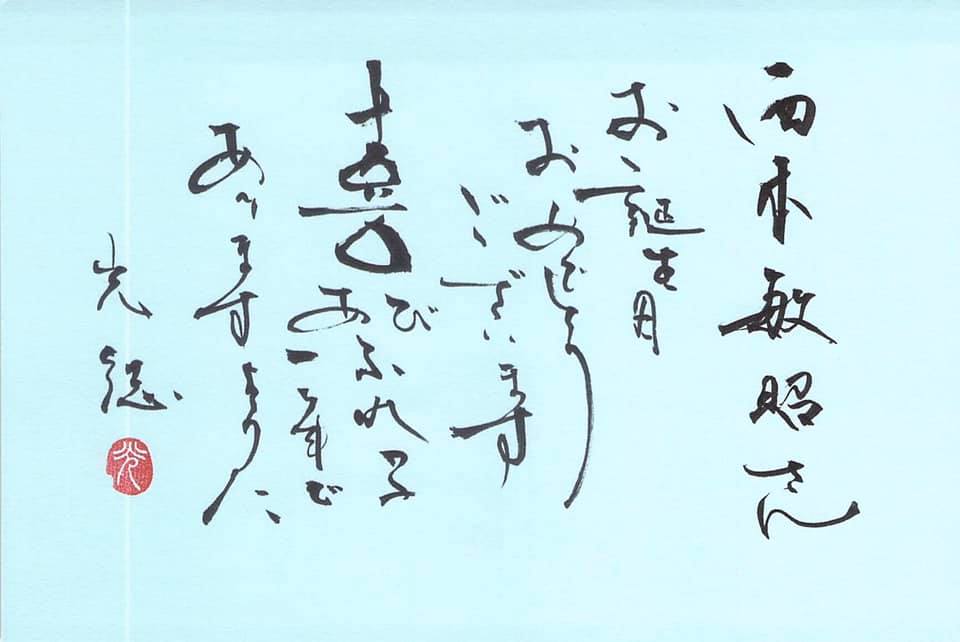 西本敏昭さん
お誕生日
おめでとう
ございます
喜びあふれる
一年で
ありますように
光
光